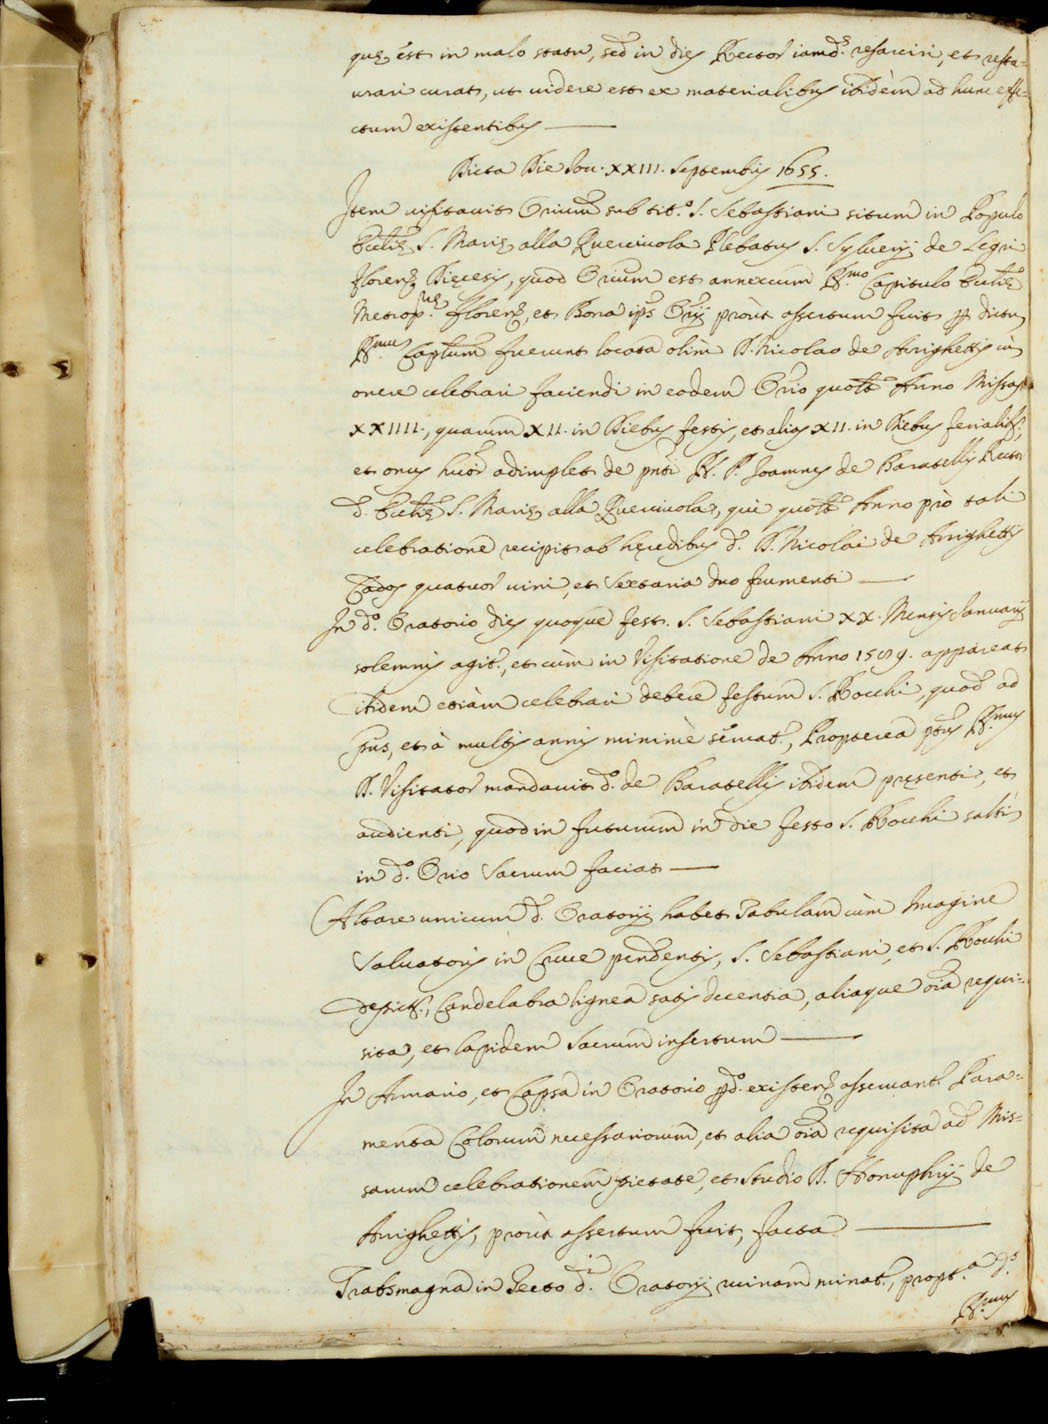 quę est in malo statu, sed in dies Rector iamd.s resarciri, et resta-
urari curat, ut uidere est ex materialibus ibidèm ad hunc effe-
ctum existentibus
Dicta Die Iou. XXIII. Septembris 1655.
Item uisitauit Orium sub tit.o S. Sebastiani situm in Populo
Ecclię S. Marię alla Querciuola Plebatus S. Syluerij de Legri
Florenę Dięcesis, quod Orium est annexum R.mo Capitulo Ecclię
Metrop.nę Florenę, et Bona ips Orij proùt assertum fuit p dictu
R.mu Captum fuerunt locata olim D. Nicolao de Arrighettis cù
onere celebrari faciendi in eodem Orio quolt Anno Missas
XXIIII., quarum XII. in Diebus festis, et alias XII. in Diebus ferialib.,
et onus huior adimplet de pnti R. P. Joannes de Baratellis Rector
d. Ecclię S. Marię alla Querciuola, qui quolt Anno prò tali
celebratione recipit ab hęredibus d. D. Nicolai de Arrighettis
Cados quatuor uini, et Sextaria duo frumenti
In d.o Oratorio dies quoque fest. S. Sebastiani XX. Mensis Januarij
solemnis agit., et cùm in Visitatione de Anno 1589. appareat
ibidem etiàm celebrari debere festum S. Rocchi, quod ad
pns, et à multis annis minimè seruat., Propterea ptus R.mus
D. Visitator mandauit d.o de Baratellis ibidem pręsenti, et
audienti, quod in futurum in die festo S. Rocchi salti
in d.o Orio Sacrum faciat
Altare unicum d. Oratorij habet Tabulam cùm Imagine
Saluatoris in Cruce pendentis, S. Sebastiani, et S. Rocchi
depict., Candelabra lignea satis decentia, aliaque oia requi-
sita, et lapidem Sacrum insertum
In Armario, et Capsa in Oratorio pd.o existen. asseruant. Para-
menta Colorum necessariorum, et alia oia requisita ad Mis-
sarum celebrationem pietate, et studio D. Honuphrij de
Arrighettis, proùt assertum fuit, facta
Trabs magna in Tecto d.i Oratorij ruinam minat., propt.a d.s
R.mus